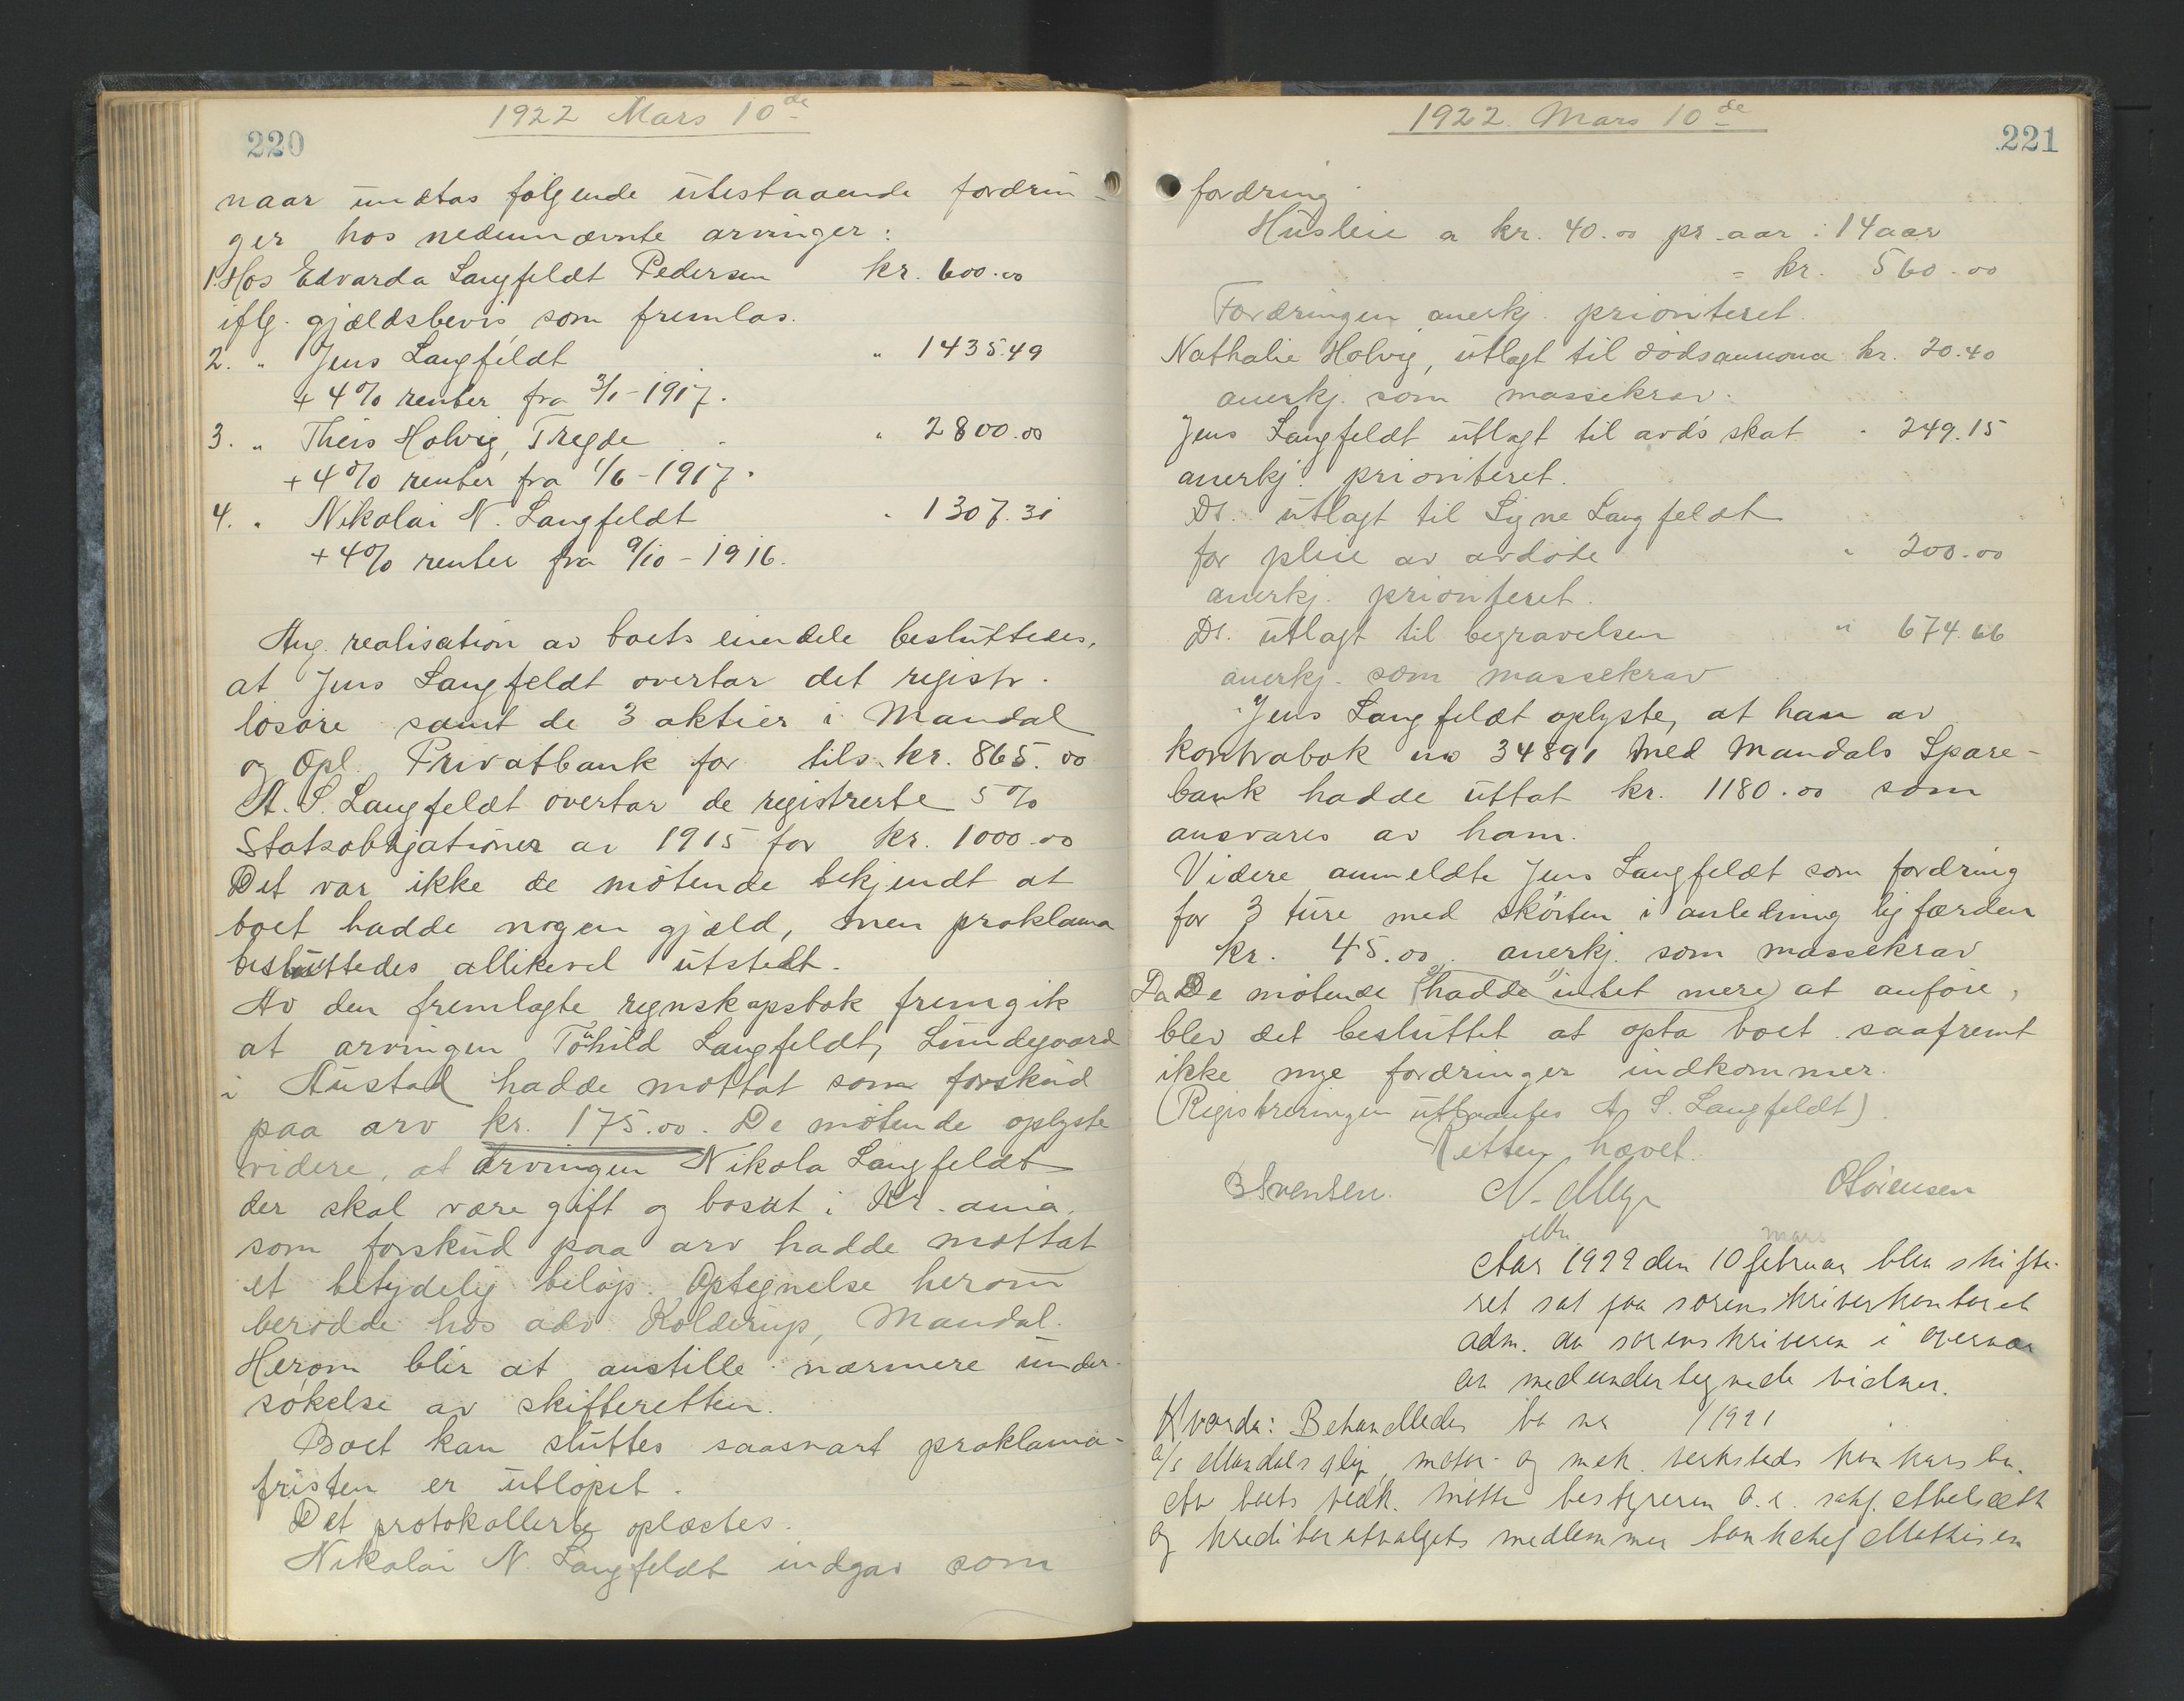 1922 Mars 10de
220
naar undtas følgende utestaaende fordrin-
ger hos nedennævnte arvinger:
1. Hos Edvarda Langfeldt Pedersen kr. 600.00
iflg. gjældsbevis som fremlas.
2. " Jens Langfeldt " 1435.49
+ 4% renter fra 3/1-1917.
3. " Theis Holvig, Tregde " 2800.00
+ 4% renter fra 1/6-1917.
4. " Nikolai N. Langfeldt " 1307.31
+ 4% renter fra 9/10-1916.
Ang. realisation av boets eiendele besluttedes,
at Jens Langfeldt overtar det registr.
løsøre samt de 3 aktier i Mandal
og Opl. Privatbank for tils. kr. 865.00
A. S. Langfeldt overtar de registrerte 5%
Statsobligationer av 1915 for kr. 1000.00
Det var ikke de møtende bekjendt at
boet hadde nogen gjæld, men proklama
besluttedes allikevel utstedt.
Av den fremlagte regnskapsbok fremgik
at arvingen Langfeldt, Lundegaard
i Austad hadde mottat som forskud
paa arv kr. 175.00. De møtende oplyste
videre, at arvingen Nikola Langfeldt
der skal være gift og bosat i Kr.ania.
som forskud paa arv hadde mottat
et betydelig beløp. Optegnelse herom
berodde hos adv. Kolderup, Mandal.
Herom blir at anstille nærmere under-
søkelse av skifteretten.
Boet kan sluttes saasnart proklama-
fristen er utløpet.
Det protokollerte oplæstes.
Nikolai N. Langfeldt indgav som
1922. Mars 10de
221
fordring
Husleie a kr. 40.00 pr aar i 14 aar
= kr. 560.00
Fordringen anerkj. prioriteret.
Nathalie Holvig, utlagt til dødsannonce kr. 20.40
anerkj. som massekrav.
Jens Langfeldt utlagt til avd's skat " 249.15
anerkj. prioriteret.
Ds. utlagt til Signe Langfeldt
for pleie av avdøde " 200.00
anerkj. prioriteret.
Ds. utlagt til begravelsen " 674.66
anerkj. som massekrav
Jens Langfeldt oplyste, at han av
kontrabok no 34891 med Mandals Spare-
bank hadde uttat kr. 1180.00 som
ansvares av ham.
Videre anmeldte Jens Langfeldt som fordring
for 3 ture med skøiten i anledning ligfærden
kr. 45.00. anerkj. som massekrav
Da De møtende hadde intet mere at anføre,
blev det besluttet at opta boet saafremt
ikke nye fordringer indkommer.
(Registreringen A. S. Langfeldt).
Retten hævet.
B Svensen. N. OSørensen
mars
Aar 1922 den 10 februar blev skifte-
ret sat paa sorenskriverkontoret
adm. av sorenskriveren i overvær
av medundertegnede vidner.
Hvorda: Behandledes bo no /1921
a/s Mandals slip, motor- og mek. verksteds konkursbo.
Av boets vedk. møtte bestyreren o.r. sakf.
og kreditorutvalgets medlemmer bankchef Mathisen